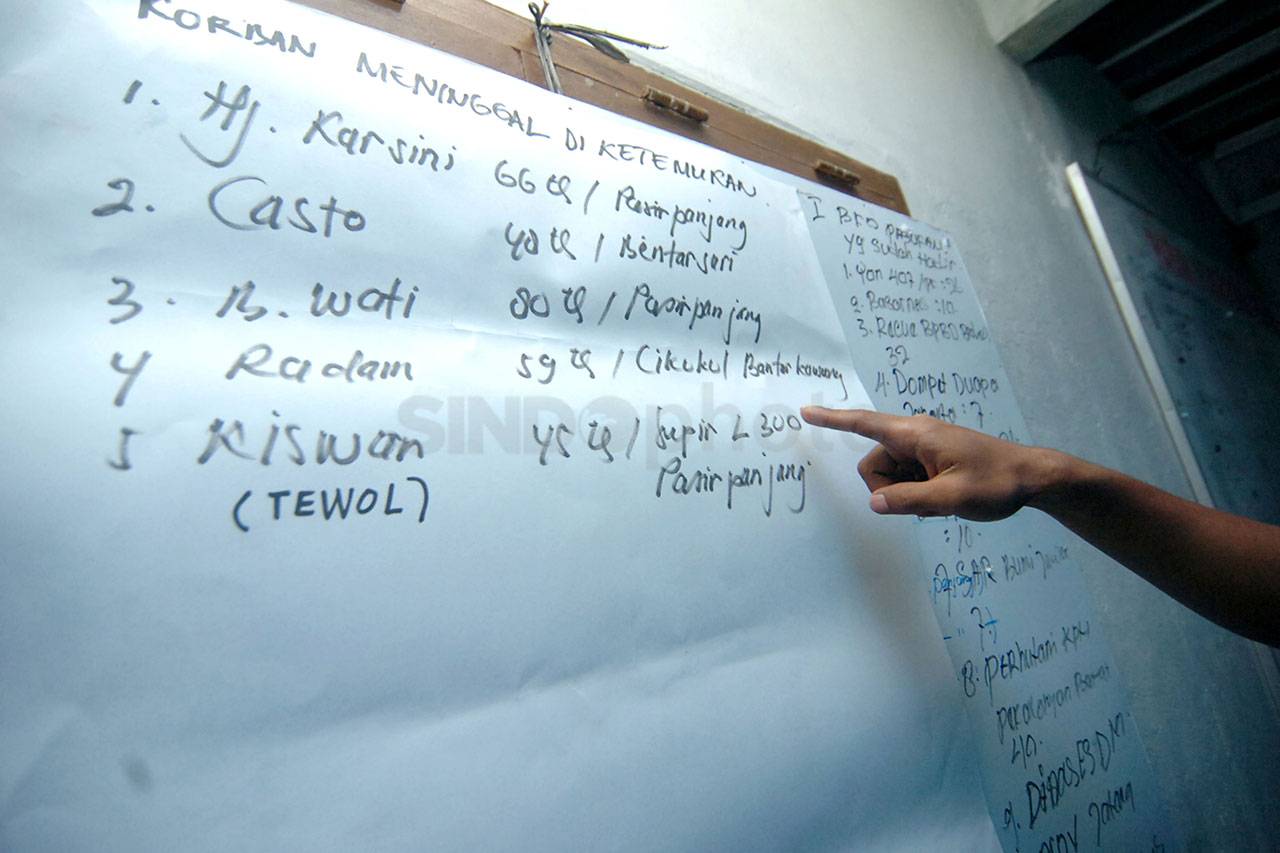 KORBAN MENINGGAL DI KETEMUKAN
1. Hj. Karsini 66 th / Pasirpanjang
2. Casto 40 th / Bentarsari
3. B. Wati 80 th / Pasirpanjang
4 Radam 59 th / Cikukul Bantarkawung
5 Kiswan 45 th / Supir L300
(TEWOL) Pasirpanjang
SINDOphoto
I BKO PASUKAN
yg sudah Hadir
1. Yon 407
2. Basarnas : 10
3. BPBD
32
4. Dompet Duapa
: 7
: 10.
SAR Bumi
7
8. PERHUTANI KPH
Pekalongan Barat
40.
9. DINAS ESDM